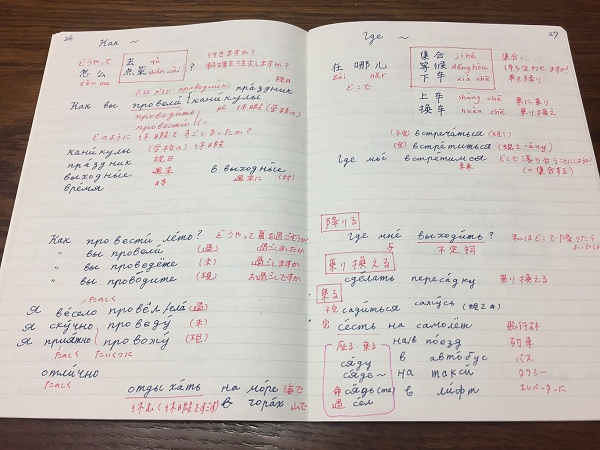 26
Как ~
どうやって
怎么
zěn me
去 qù
点菜 diǎn cài
?
行きますか?
料理を注文しますか?
祝日
Как вы провели каникулы праздник
проводить
провести
休暇(学校の)
どのように休暇をすごしましたか?
каникулы (学校の) 休暇
праздник 祝日
выходные 週末 в выходные
週末に
время 時
Как провести лето? どうやって夏を過ごそうか
" вы провели (過) 過ごしましたか
" вы проведёте (未) 過ごしますか
" вы проводите (現) お過ごしですか
たのしく
Я весело провёл/ела (過)
Я скучно проведу (未)
Я приятно провожу (現)
たのしく たいくつに
отлично
たのしく
отдыхать на море 海で
休む(休暇をすごす) в горах 山で
27
Где ~
在 哪儿
zài nǎr
どこで
集合 jí hé
等候 děng hòu
下车 xià chē
集合し
待ち合わせますか?
車を降り
上车 shàng chē 車に乗り
换车 huàn chē 乗り換え
встречаться
встретиться
Где мы встретимся どこで落ち合うことにしようか
未来 (=集合する)
降りる
Где мне выходить? 私はどこで降りたら
与 不定詞
乗り換える
сделать пересадку 乗り換える
乗る
садиться сажусь
сесть на самолёт 飛行機
座る・乗る
на/в поезд 列車
сяду в автобус バス
сядь ~ на такси タクシー
命 сядь(те) в лифт エレベーターに
過 сел